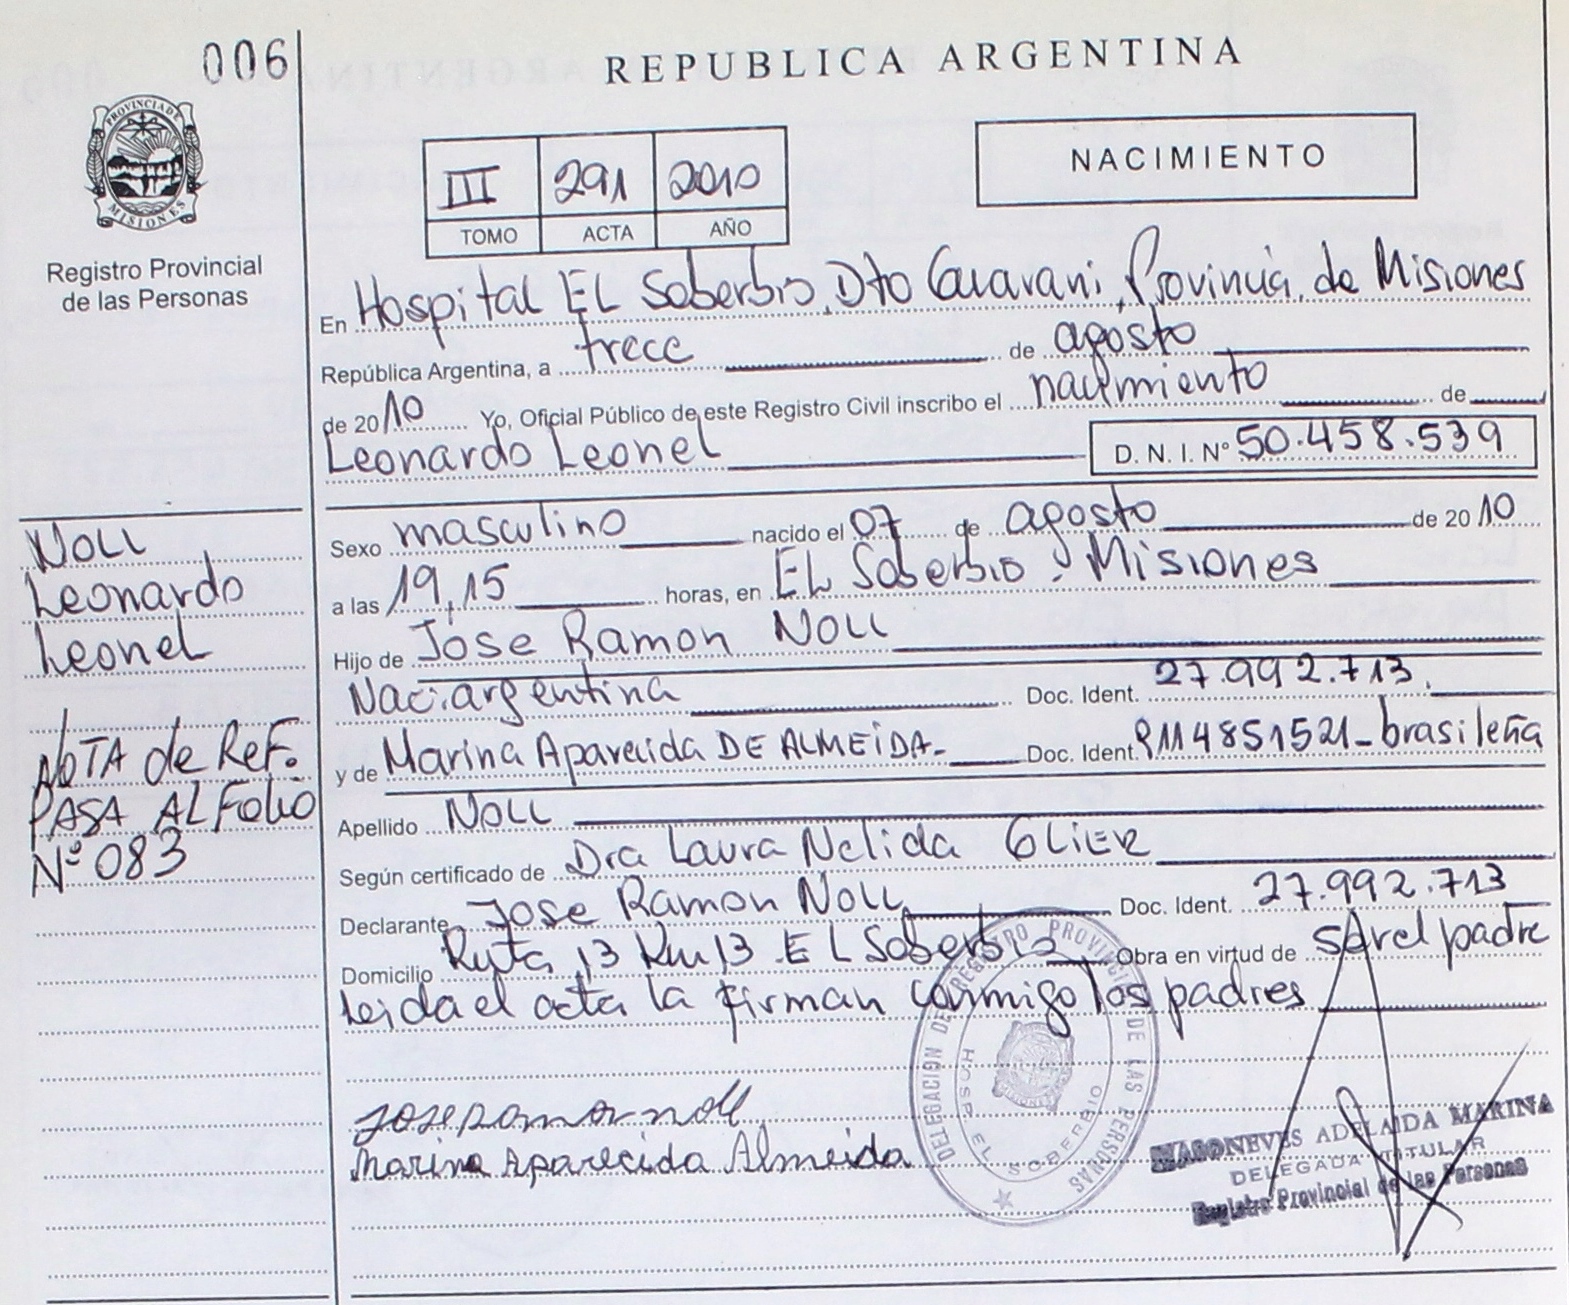 006
REPUBLICA ARGENTINA
PROVINCIA DE MISIONES
Registro Provincial
de las Personas
III 291 2010
TOMO ACTA AÑO
NACIMIENTO
En Hospital EL Soberbio, Dto Guarani, Provincia de Misiones
República Argentina, a trece de agosto
de 2010 Yo, Oficial Público de este Registro Civil inscribo el nacimiento de
Leonardo Leonel D. N. I. Nº 50.458.539
NOLL
Leonardo
Leonel
Sexo masculino nacido el 07 de agosto de 2010
a las 19,15 horas, en EL Soberbio, Misiones
Hijo de Jose Ramon NOLL
Nac: argentina Doc. Ident. 27.992.713.
y de Marina Aparecida DE ALMEIDA- Doc. Ident. 114851521-brasileña
NOTA de REF.
PASA AL Folio
Nº 083
Apellido NOLL
Según certificado de Dra Laura Nelida GLIER
Declarante Jose Ramon NOLL Doc. Ident. 27.992.713
Domicilio Ruta 13 Km 13 EL Soberbio Obra en virtud de ser el padre
Leida el acta la firman conmigo los padres
Jose ramon noll
Marina Aparecida Almeida
DELEGACION DEL REGISTRO PROVINCIAL DE LAS PERSONAS
HOSP. EL SOBERBIO
ADELAIDA MARINA
DELEGADA TITULAR
Registro Provincial de las Personas